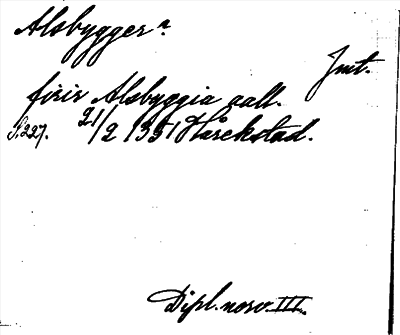 Alsbygger n.
Jmt.
firir Alsbyggia vall.
S. 227. 21/2 1351 Hårekstad.
Dipl. norv. III.